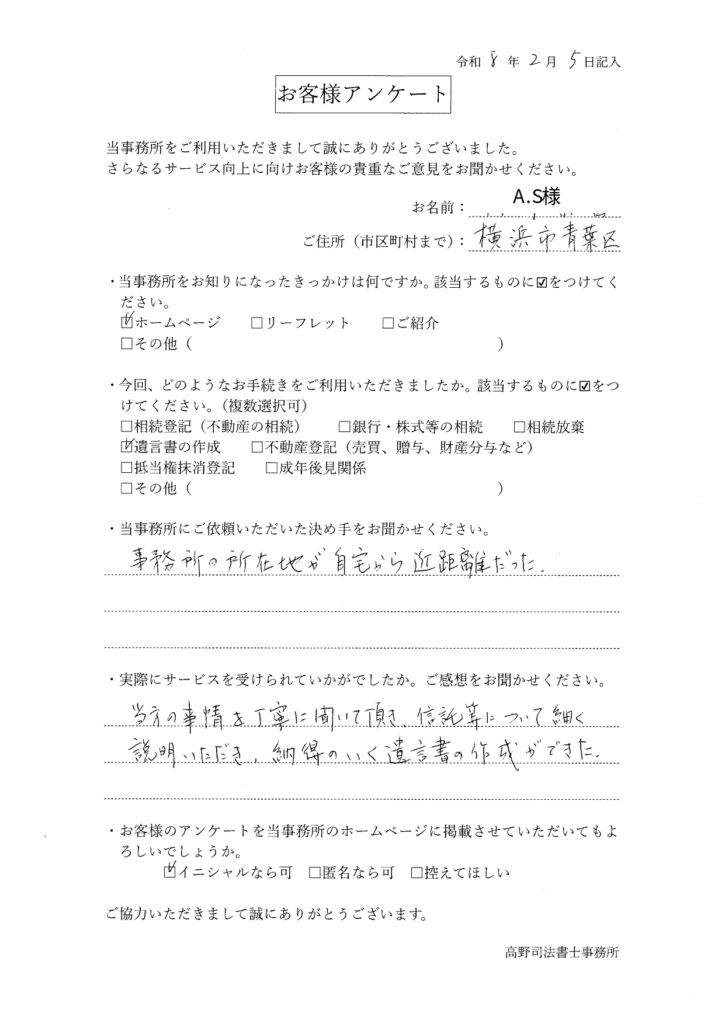 令和 8 年 2 月 5 日記入
お客様アンケート
当事務所をご利用いただきまして誠にありがとうございました。
さらなるサービス向上に向けお客様の貴重なご意見をお聞かせください。
お名前： A.S様
ご住所（市区町村まで）： 横浜市青葉区
・当事務所をお知りになったきっかけは何ですか。該当するものに☑をつけてく
ださい。
☑ホームページ　□リーフレット　□ご紹介
□その他（　　　　　　　　　　　　　　　　　　　　　）
・今回、どのようなお手続きをご利用いただきましたか。該当するものに☑をつ
けてください。（複数選択可）
□相続登記（不動産の相続）　□銀行・株式等の相続　□相続放棄
☑遺言書の作成　□不動産登記（売買、贈与、財産分与など）
□抵当権抹消登記　□成年後見関係
□その他（　　　　　　　　　　　　　　　　　　　　　）
・当事務所にご依頼いただいた決め手をお聞かせください。
事務所の所在地が自宅から近距離だった.
・実際にサービスを受けられていかがでしたか。ご感想をお聞かせください。
当方の事情を丁寧に聞いて頂き、信託等について細く
説明いただき、納得のいく遺言書の作成ができた.
・お客様のアンケートを当事務所のホームページに掲載させていただいてもよ
ろしいでしょうか。
☑イニシャルなら可　□匿名なら可　□控えてほしい
ご協力いただきまして誠にありがとうございます。
高野司法書士事務所